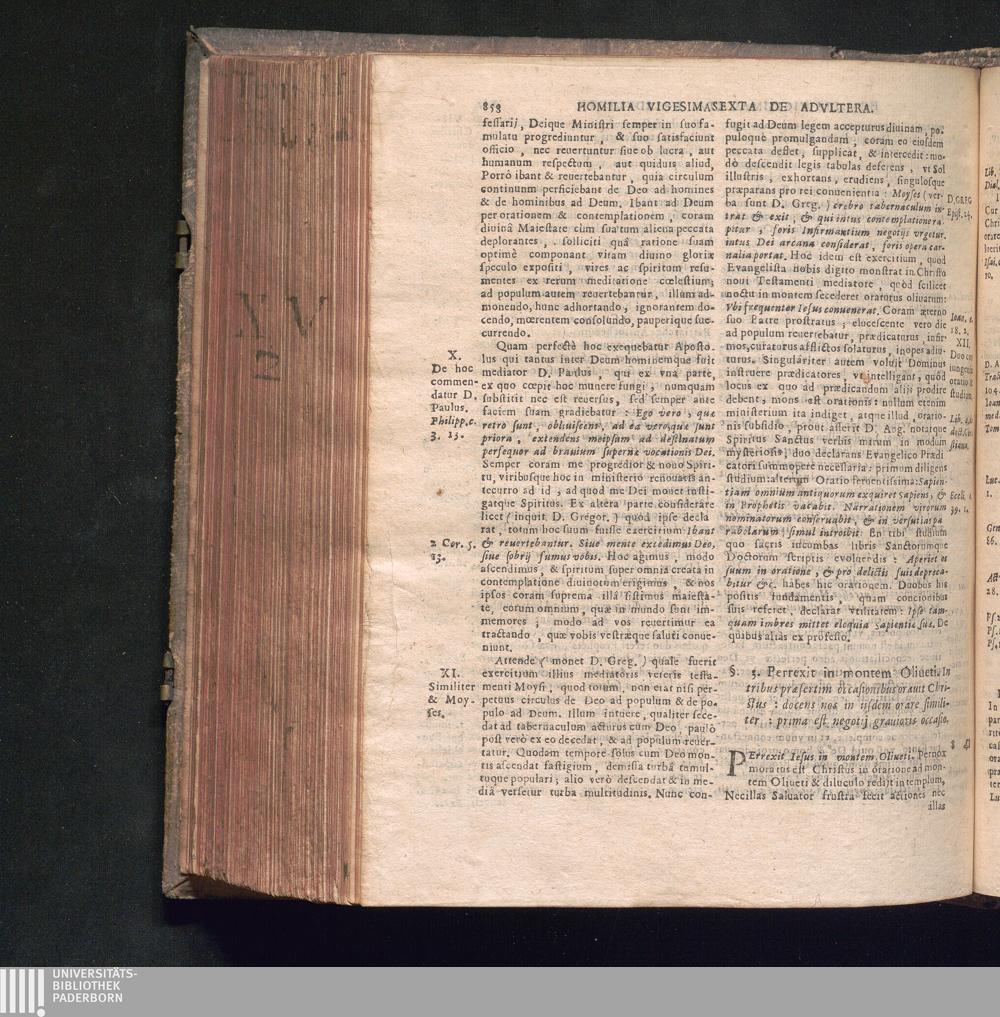 858 HOMILIA VIGESIMASEXTA DE ADVLTERA.
fessarij, Deique Ministri semper in suo fa-
mulatu progrediuntur, & suo satisfaciunt
officio, nec reuertuntur siue ob lucra, aut
humanum respectum, aut quiduis aliud,
Porrò ibant & reuertebantur, quia circulum
continuum perficiebant de Deo ad homines
& de hominibus ad Deum. Ibant ad Deum
per orationem & contemplationem, coram
diuinâ Maiestate cùm sua tum aliena peccata
deplorantes, solliciti quâ ratione suam
optimè componant vitam diuino gloriæ
speculo expositi, vires ac spiritum resu-
mentes ex rerum meditatione cœlestium;
ad populum autem reuertebantur, illum ad-
monendo, hunc adhortando, ignorantem do-
cendo, mœrentem consolundo, pauperique suc-
currendo.
X.
De hoc
commen-
datur D.
Paulus.
Philipp.c.
3. 13.
Quam perfectè hoc exequebatur Aposto-
lus qui tantus inter Deum hominemque fuit
mediator D. Paulus, qui ex vna parte,
ex quo cœpit hoc munere fungi, numquam
substitit nec est reuersus, sed semper ante
faciem suam gradiebatur: Ego vero, quæ
retro sunt, obliuiscens, ad ea vero, quæ sunt
priora, extendens meipsum ad destinatum
persequor ad brauium supernæ vocationis Dei.
Semper coram me progredior & nouo Spiri-
tu, viribusque hoc in ministerio renouatis an-
tecurro ad id, ad quod me Dei mouet insti-
gatque Spiritus. Ex altera parte considerare
licet (inquit D. Gregor.) quod ipse decla
rat, totum hoc suum fuisse exercitium Ibant
& reuertebantur. Siue mente excedimus Deo,
siue sobrij sumus vobis. Hoc agimus, modo
ascendimus, & spiritum super omnia creata in
contemplatione diuinorum erigimus, & nos
ipsos coram suprema illa sistimus maiesta-
te, eorum omnium, quæ in mundo sunt im-
memores; modo ad vos reuertimur ea
tractando, quæ vobis vestræque saluti conue-
niunt.
2 Cor. 5.
13.
XI.
Similiter
& Moy-
ses.
Attende (monet D. Greg.) quale fuerit
exercitium illius mediatoris veteris testa-
menti Moysi, quod totum, non erat nisi per-
petuus circulus de Deo ad populum & de po-
pulo ad Deum. Illum intuere, qualiter sece-
dat ad tabernaculum acturus cum Deo, paulò
post verò ex eo decedat, & ad populum reuer-
tatur. Quodam tempore solus cum Deo mon-
tis ascendat fastigium, demissa turbâ tumul-
tuque populari; alio verò descendat & in me-
diâ versetur turba multitudinis. Nunc con-
fugit ad Deum legem accepturus diuinam, po-
puloque promulgandam, coram eo eiusdem
peccata deflet, supplicat, & intercedit: mo-
dò descendit legis tabulas deferens, vt Sol
illustris, exhortans, erudiens, singulosque
præparans pro rei conuenientia: Moyses (ver-
ba sunt D. Greg.) crebro tabernaculum in-
trat & exit, & qui intus contemplatione ra-
pitur, foris Infirmantium negotijs vrgetur.
intus Dei arcana considerat, foris opera car-
nalia portat. Hoc idem est exercitium, quod
Euangelista nobis digito monstrat in Christo
noui Testamenti mediatore, quòd scilicet
noctu in montem secederet oraturus oliuarum:
Vbi frequenter Iesus conuenerat. Coram æterno
suo Patre prostratus, elucescente vero die
ad populum reuertebatur, prædicaturus, infir-
mos, curaturus afflictos solaturus, inopes adiu-
turus. Singulariter autem voluit Dominus
instruere prædicatores, vt intelligant, quòd
locus ex quo ad prædicandum alij prodire
debent, mons est orationis: nullum etenim
ministerium ita indiget, atque illud, oratio-
nis subsidio, prout asserit D. Aug. notatque
Spiritus Sanctus verbis mirum in modum
mysteriosis, duo declarans Euangelico Prædi
catori summoperè necessaria: primum diligens
studium: alterum Oratio feruentissima: Sapien-
tiam omnium antiquorum exquiret sapiens, &
in Prophetis vacabit. Narrationem virorum
nominatorum conseruabit, & in versutias pa
rabolarum simul introibit. En tibi studium
quo sacris incumbas libris Sanctorumque
Doctorum scriptis euoluendis: Aperiet os
suum in oratione, & pro delictis suis depreca-
bitur &c. habes hic orationem. Duobus his
positis fundamentis, quam concionibus
suis referet, declarat vtilitatem: Ipse tam-
quam imbres mittet eloquia Sapientiæ suæ. De
quibus alias ex professo.
D. GREG
Epist. 24.
Ioan. c.
18. 2.
XII.
Ecclj. c.
39. 1.
§. 5. Perrexit in montem Oliueti. In
tribus præsertim occasionibus orauit Chri-
stus: docens nos in iisdem orare simili-
ter: prima est negotij grauioris occasio.
PErrexit Iesus in montem Oliueti. Pernox
moratus est Christus in oratione ad mon-
tem Oliueti & diluculo redijt in templum,
Necillas Saluator frustra fecit actiones nec
illas
UNIVERSITÄTS-
BIBLIOTHEK
PADERBORN